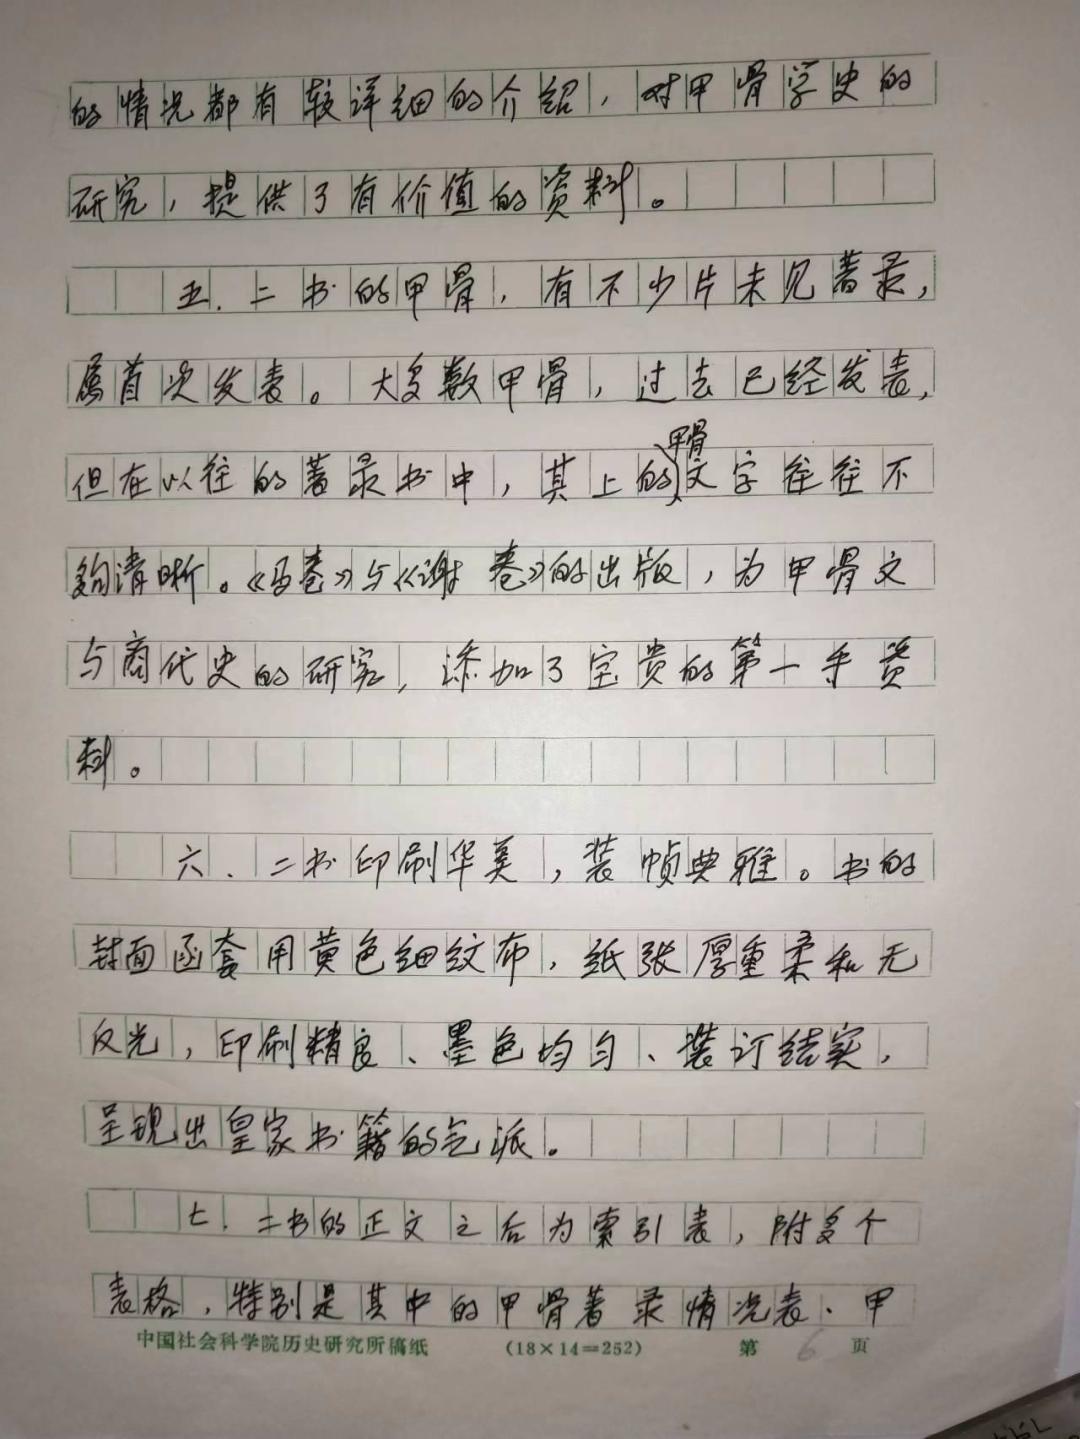 的情况都有较详细的介绍，对甲骨学史的
研究，提供了有价值的资料。
五．二书的甲骨，有不少片未见著录，
属首次发表。大多数甲骨，过去已经发表，
但在以往的著录书中，其上的甲骨文字往往不
够清晰。《马卷》与《谢卷》的出版，为甲骨文
与商代史的研究，添加了宝贵的第一手资
料。
六．二书印刷华美，装帧典雅。书的
封面函套用黄色细纹布，纸张厚重柔和无
反光，印刷精良、墨色均匀、装订结实，
呈现出皇家书籍的气派。
七．二书的正文之后为索引表，附多个
表格，特别是其中的甲骨著录情况表、甲
中国社会科学院历史研究所稿纸 (18×14=252) 第 6 页